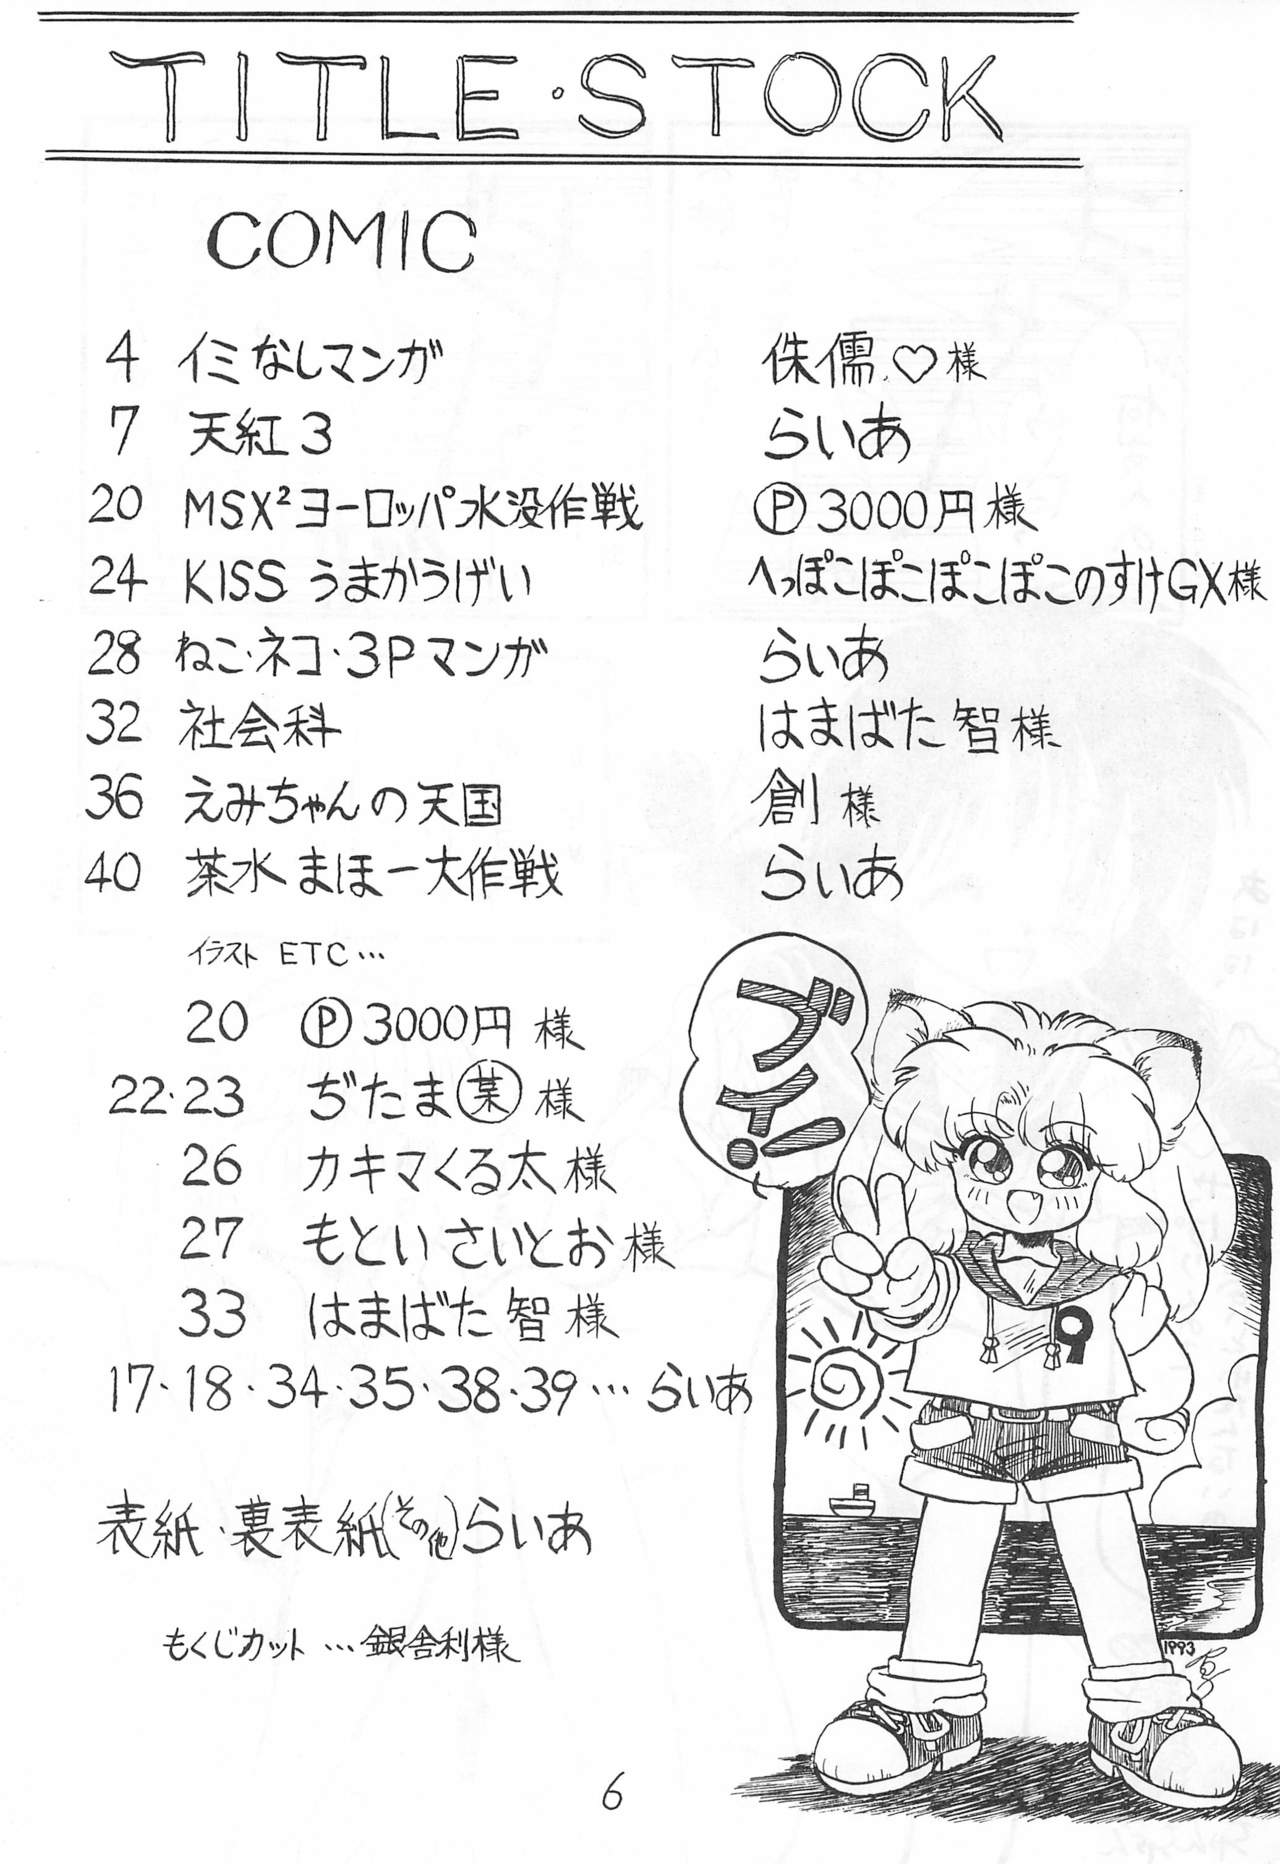 TITLE・STOCK
COMIC
4 イミなしマンガ 侏儒♡様
7 天紅3 らいあ
20 MSX²ヨーロッパ水没作戦 Ⓟ3000円様
24 KISS うまかうげい へっぽこぽこぽこぽこのすけGX様
28 ねこ・ネコ・3Pマンガ らいあ
32 社会科 はまばた智様
36 えみちゃんの天国 創様
40 茶水まほー大作戦 らいあ
イラスト ETC…
20 Ⓟ3000円様
22・23 ぢたま某様
26 カキマくる太様
27 もといさいとお様
33 はまばた智様
17・18・34・35・38・39…らいあ
表紙・裏表紙(その他)らいあ
もくじカット…銀舎利様
ブイ!
9
1993
6